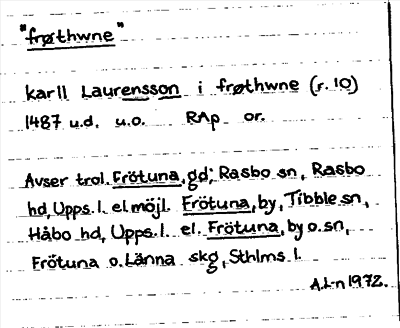 "frøthwne"
karll Laurensson i frøthwne (r. 10)
1487 u.d. u.o. RAp or.
Avser trol. Frötuna, gd; Rasbo sn, Rasbo
hd, Upps. l. el möjl. Frötuna, by, Tibble sn,
Håbo hd, Upps. l. el. Frötuna, by o. sn,
Frötuna o. Länna skg, Sthlms l.
A.L-n 1972.